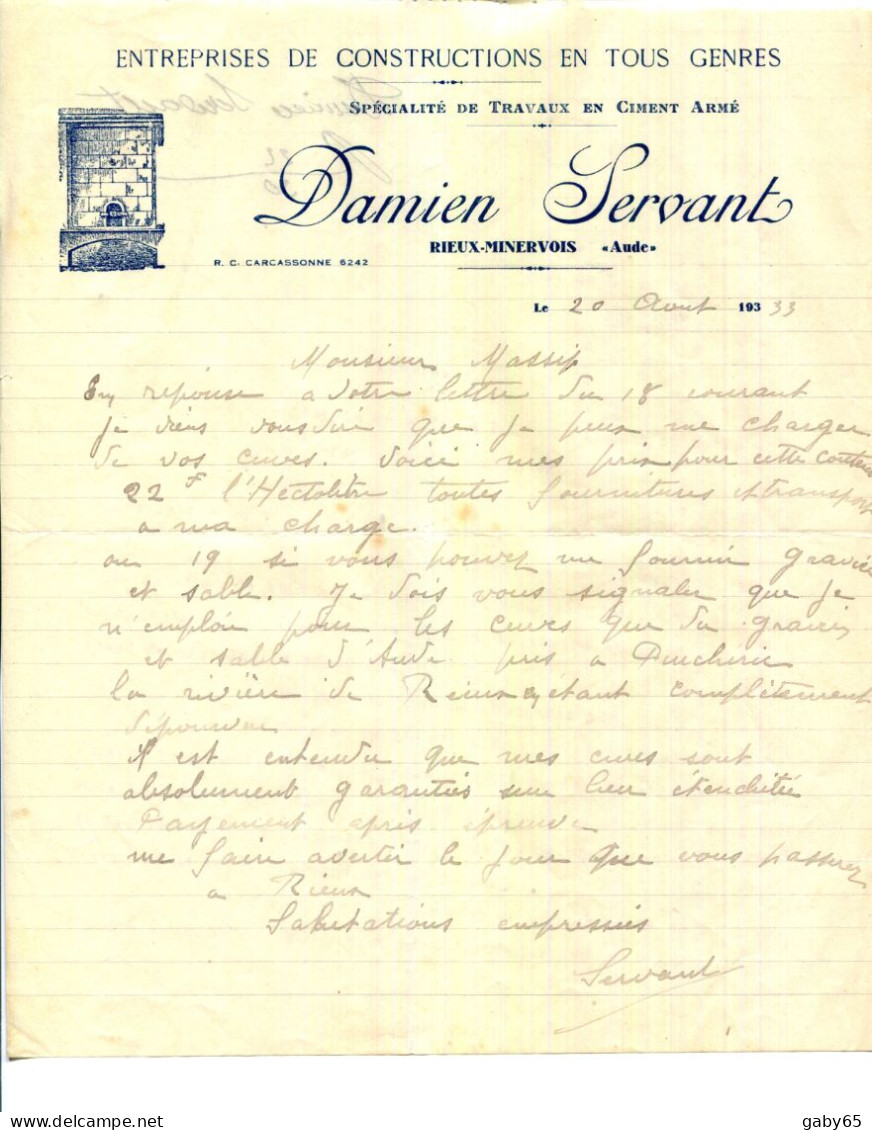 ENTREPRISES DE CONSTRUCTIONS EN TOUS GENRES
SPÉCIALITÉ DE TRAVAUX EN CIMENT ARMÉ
Damien Servant
RIEUX-MINERVOIS «Aude»
R. C. CARCASSONNE 6242
Le 20 Aout 193 33
Monsieur Massip
En reponse a votre lettre du 18 courant
je viens vous dire que je peux me charger
de vos cuves. Voici mes prix pour cette
22 f l'Hectolitre toutes fournitures et transport
a ma charge.
ou 19 si vous pouvez me fournir gravier
et sable. Je dois vous signaler que je
n'emploie pour les cuves que du gravier
et sable d'Aude pris a
la rivière de Rieux étant complètement
dépourvue
Il est entendu que mes cuves sont
absolument garanties sur leur
Payement après épreuve
me faire avertir le jour que vous passerez
a Rieux
Salutations empressées
Servant
gaby65